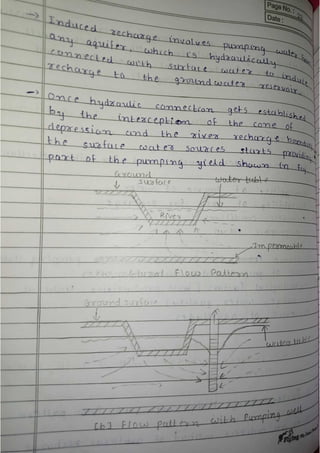 Page No.:
Date:
→ Induced recharge involves pumping water from
any aquifer, which is hydraulically
connected with surface water to induce
recharge to the groundwater reservoir.
→ Once hydraulic connection gets established
by the interception of the cone of
depression and the river recharge
the surface water sources starts providing
part of the pumping yield shown in Fig.
Ground surface
water table
River
Impermeable
Flow Pattern
Ground surface
water table
[b] Flow pattern with Pumping well